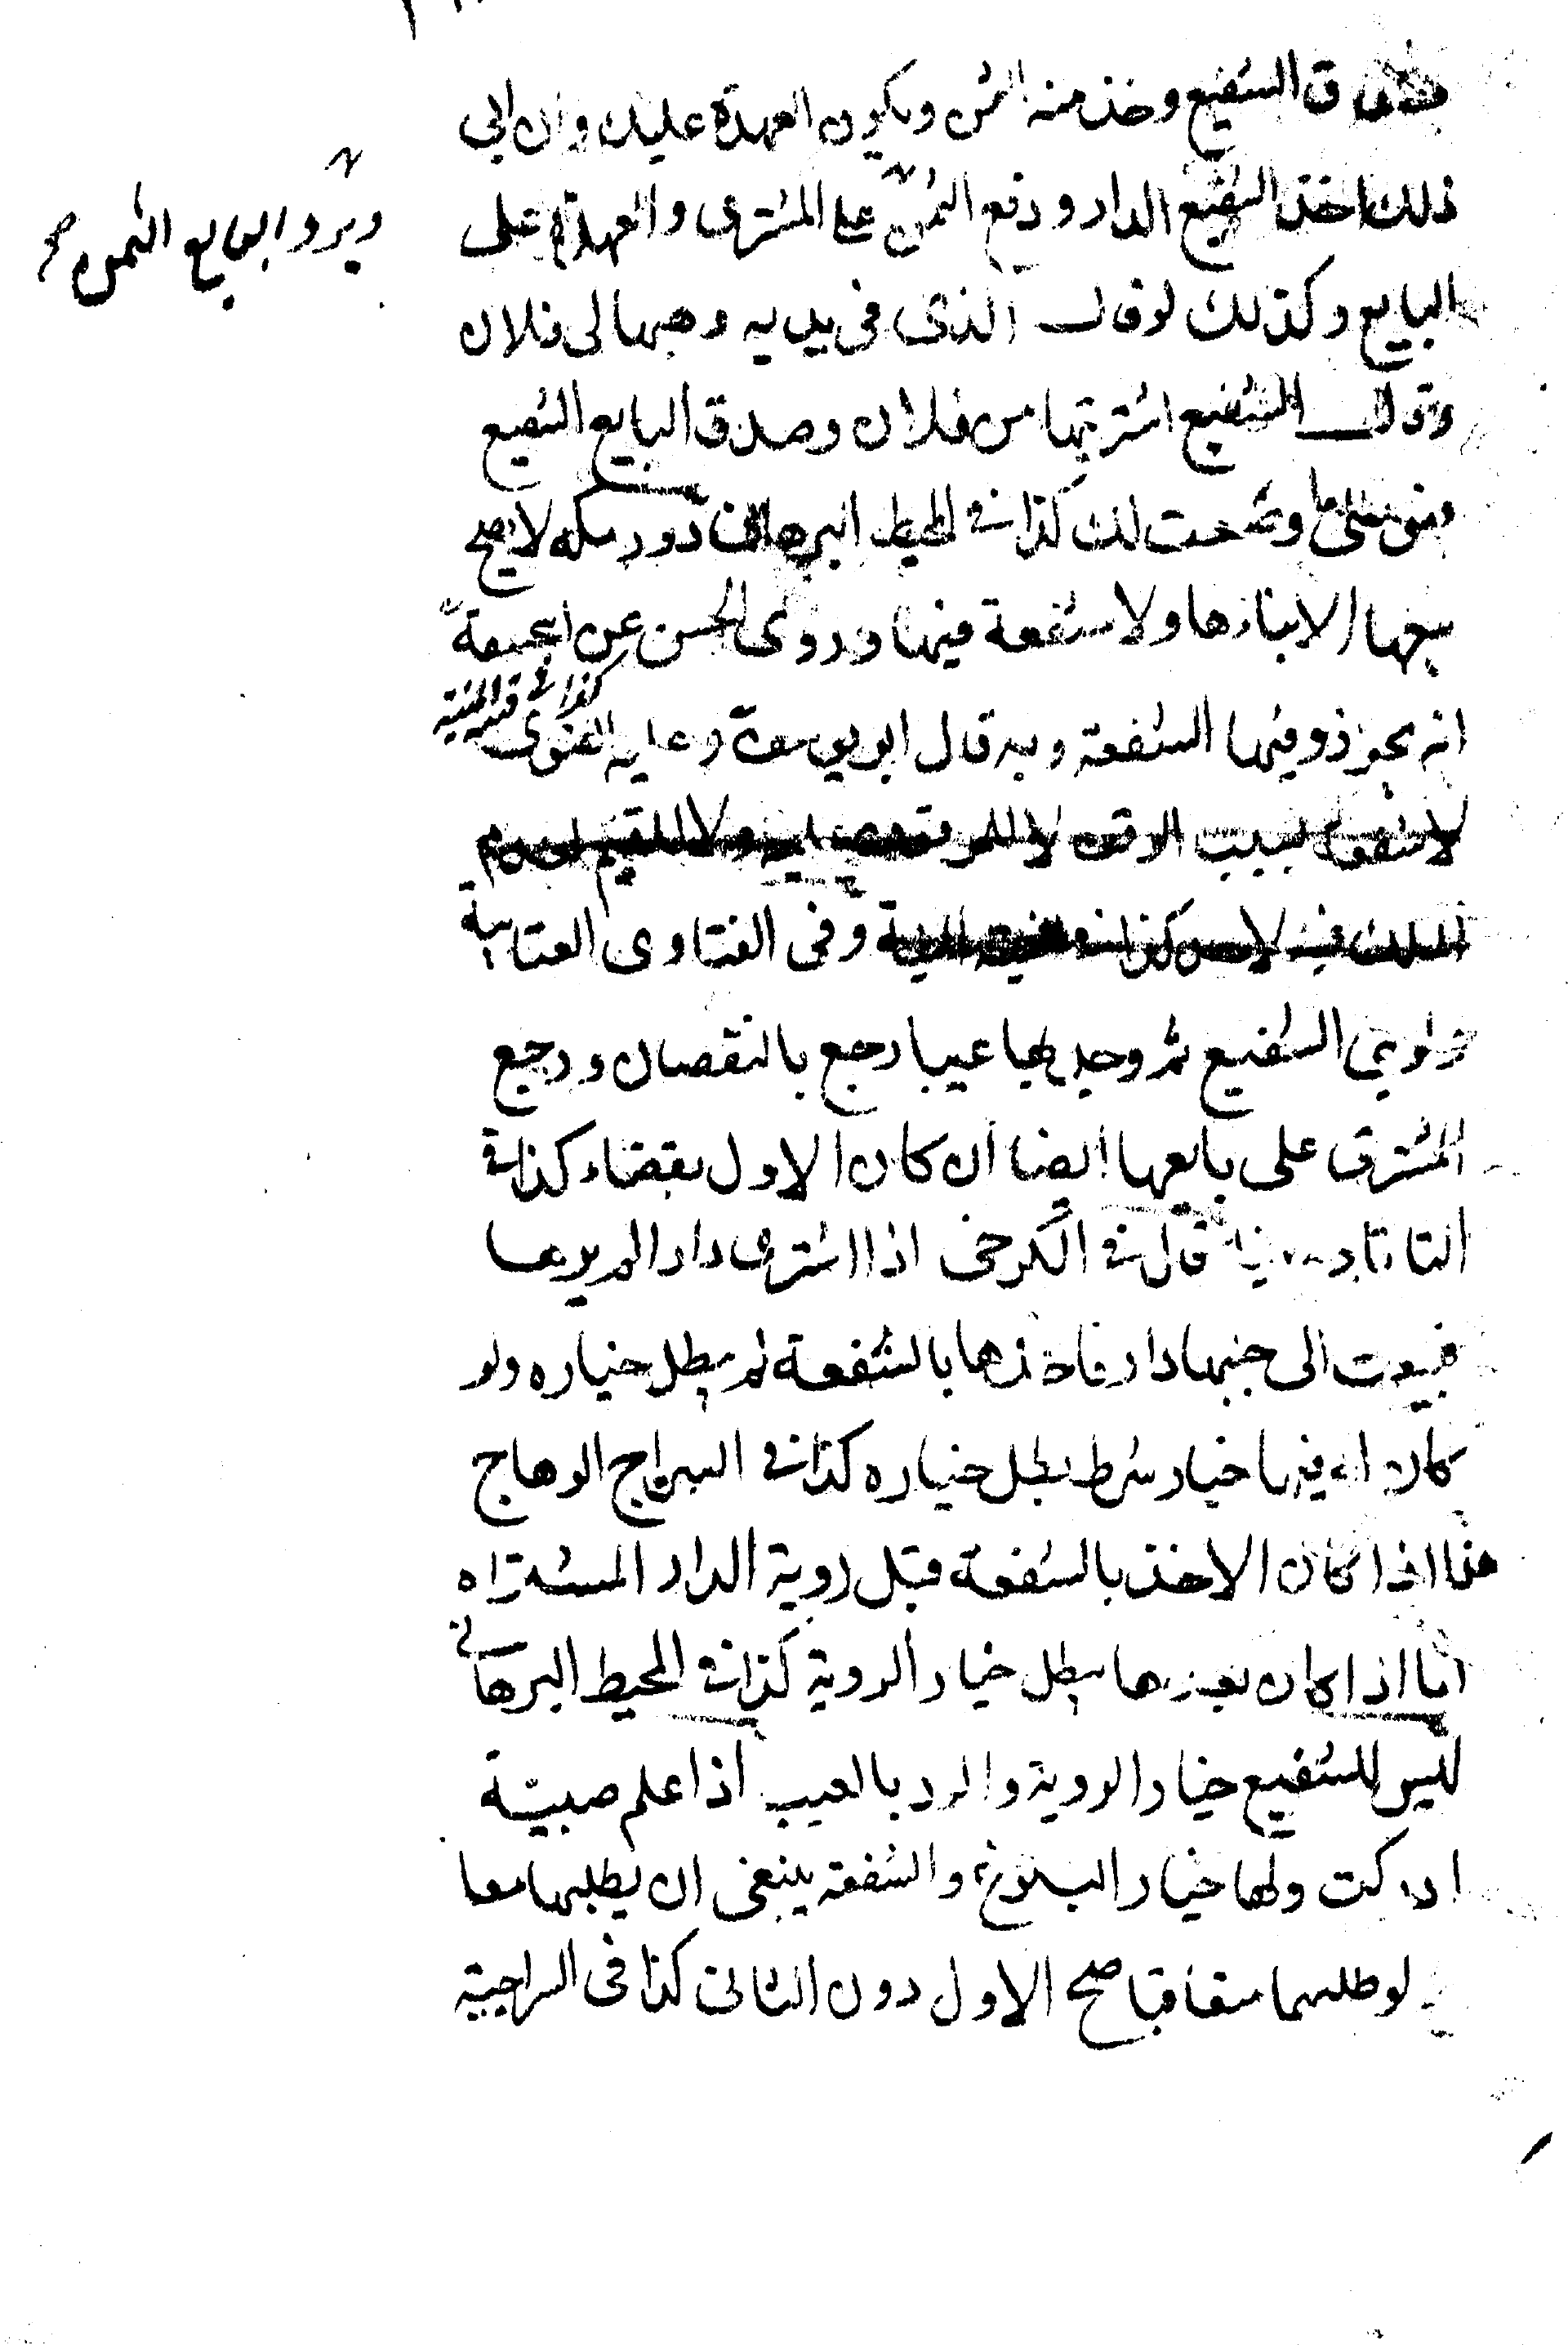 صدق الشفيع وخذ منه الثمن ويكون العهدة عليك وان ابى
ذلك اخذ الشفيع الدار ودفع الثمن على المشترى والعهدة على
ويرد البايع الثمن صح
البايع وكذلك لو قال الذى فى يديه وهبها لى فلان
وقال الشفيع اشتريتها من فلان وصدق البايع الشفيع
لك كذا فى المحيط البرهانى دور مكه لا يصح
بيعها الا بناءها ولا شفعة فيها وروى الحسن عن ابى حنيفة
انه يجوز وفيها الشفعة وبه قال ابو يوسف وعليه الفتوى
كذا فى قنية المنية
لا شفعة بسبب الوقف لا للموقوف عليه ولا للقيم لعدم
الملك كذا فى وفى الفتاوى العتابية
ولو بنى الشفيع ثم وجد بها عيبا رجع بالنقصان ورجع
المشترى على بايعها ايضا ان كان الاول بقضاء كذا فى
التاتارخانية قال فى الكرخى اذا اشترى دارا لم يرها
فبيعت الى جنبها دار فاخذها بالشفعة لم يبطل خياره ولو
كان له فيها خيار شرط بطل خياره كذا فى السراج الوهاج
هذا اذا كان الاخذ بالشفعة قبل روية الدار المشتراه
اما اذا كان بعدها يبطل خيار الروية كذا فى المحيط البرهانى
ليس للشفيع خيار الروية والرد بالعيب اذا علم صبية
ادركت ولها خيار البلوغ والشفعة ينبغى ان يطلبها معا
لو طلبهما متعاقبا صح الاول دون الثانى كذا فى السراجية